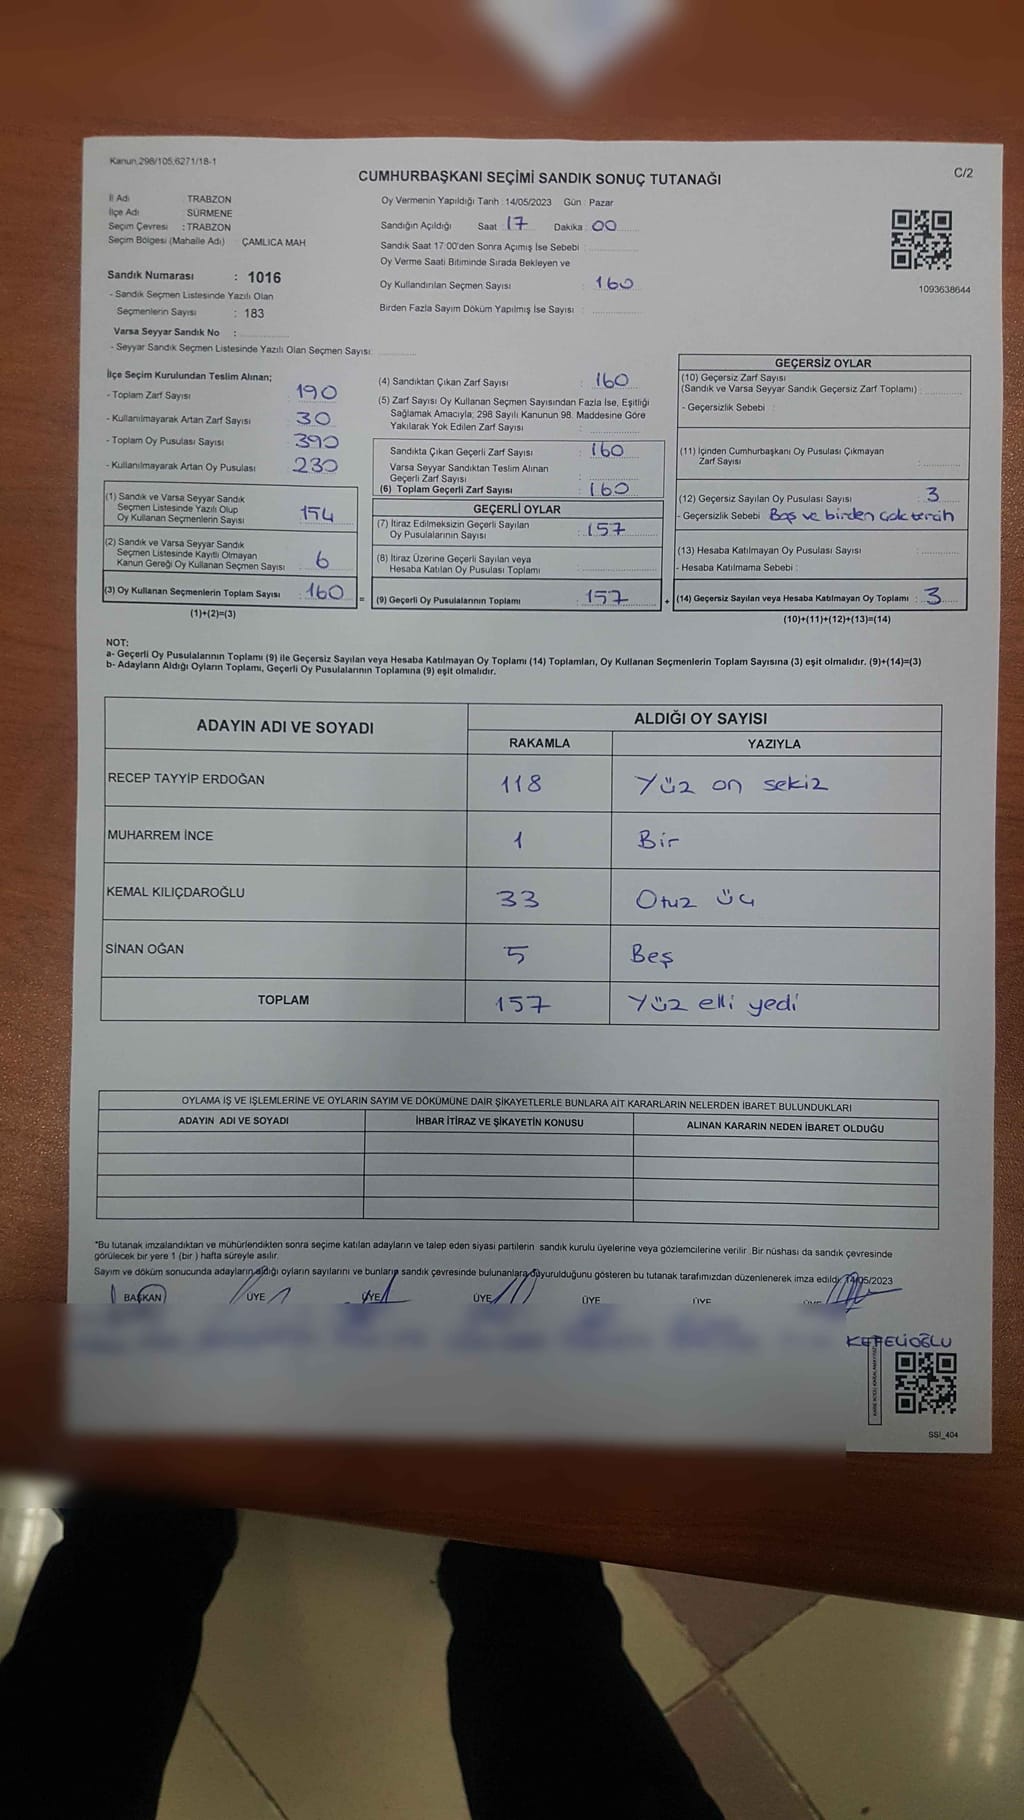 Kanun.298/105,6271/18-1
C/2
CUMHURBAŞKANI SEÇİMİ SANDIK SONUÇ TUTANAĞI
İl Adı : TRABZON
İlçe Adı : SÜRMENE
Seçim Çevresi : TRABZON
Seçim Bölgesi (Mahalle Adı) ÇAMLICA MAH
Sandık Numarası : 1016
- Sandık Seçmen Listesinde Yazılı Olan
Seçmenlerin Sayısı : 183
Varsa Seyyar Sandık No :
- Seyyar Sandık Seçmen Listesinde Yazılı Olan Seçmen Sayısı:
Oy Vermenin Yapıldığı Tarih :14/05/2023 Gün : Pazar
Sandığın Açıldığı Saat : 17 Dakika : 00
Sandık Saat 17:00'den Sonra Açımış İse Sebebi :
Oy Verme Saati Bitiminde Sırada Bekleyen ve
Oy Kullandırılan Seçmen Sayısı : 160
Birden Fazla Sayım Döküm Yapılmış İse Sayısı :
1093638644
İlçe Seçim Kurulundan Teslim Alınan;
- Toplam Zarf Sayısı : 190
- Kullanılmayarak Artan Zarf Sayısı : 30
- Toplam Oy Pusulası Sayısı : 390
- Kullanılmayarak Artan Oy Pusulası : 230
(1) Sandık ve Varsa Seyyar Sandık
Seçmen Listesinde Yazılı Olup
Oy Kullanan Seçmenlerin Sayısı : 154
(2) Sandık ve Varsa Seyyar Sandık
Seçmen Listesinde Kayıtlı Olmayan
Kanun Gereği Oy Kullanan Seçmen Sayısı : 6
(3) Oy Kullanan Seçmenlerin Toplam Sayısı : 160
(1)+(2)=(3)
(4) Sandıktan Çıkan Zarf Sayısı : 160
(5) Zarf Sayısı Oy Kullanan Seçmen Sayısından Fazla İse, Eşitliği
Sağlamak Amacıyla; 298 Sayılı Kanunun 98. Maddesine Göre
Yakılarak Yok Edilen Zarf Sayısı :
Sandıkta Çıkan Geçerli Zarf Sayısı : 160
Varsa Seyyar Sandıktan Teslim Alınan
Geçerli Zarf Sayısı :
(6) Toplam Geçerli Zarf Sayısı : 160
GEÇERLİ OYLAR
(7) İtiraz Edilmeksizin Geçerli Sayılan
Oy Pusulalarının Sayısı : 157
(8) İtiraz Üzerine Geçerli Sayılan veya
Hesaba Katılan Oy Pusulası Toplamı :
= (9) Geçerli Oy Pusulalarının Toplamı : 157
GEÇERSİZ OYLAR
(10) Geçersiz Zarf Sayısı
(Sandık ve Varsa Seyyar Sandık Geçersiz Zarf Toplamı) :
- Geçersizlik Sebebi :
(11) İçinden Cumhurbaşkanı Oy Pusulası Çıkmayan
Zarf Sayısı :
(12) Geçersiz Sayılan Oy Pusulası Sayısı : 3
- Geçersizlik Sebebi : Boş ve birden çok tercih
(13) Hesaba Katılmayan Oy Pusulası Sayısı :
- Hesaba Katılmama Sebebi :
+ (14) Geçersiz Sayılan veya Hesaba Katılmayan Oy Toplamı : 3
(10)+(11)+(12)+(13)=(14)
NOT:
a- Geçerli Oy Pusulalarının Toplamı (9) ile Geçersiz Sayılan veya Hesaba Katılmayan Oy Toplamı (14) Toplamları, Oy Kullanan Seçmenlerin Toplam Sayısına (3) eşit olmalıdır. (9)+(14)=(3)
b- Adayların Aldığı Oyların Toplamı, Geçerli Oy Pusulalarının Toplamına (9) eşit olmalıdır.
ADAYIN ADI VE SOYADI
ALDIĞI OY SAYISI
RAKAMLA YAZIYLA
RECEP TAYYİP ERDOĞAN 118 Yüz on sekiz
MUHARREM İNCE 1 Bir
KEMAL KILIÇDAROĞLU 33 Otuz üç
SİNAN OĞAN 5 Beş
TOPLAM 157 Yüz elli yedi
OYLAMA İŞ VE İŞLEMLERİNE VE OYLARIN SAYIM VE DÖKÜMÜNE DAİR ŞİKAYETLERLE BUNLARA AİT KARARLARIN NELERDEN İBARET BULUNDUKLARI
ADAYIN ADI VE SOYADI İHBAR İTİRAZ VE ŞİKAYETİN KONUSU ALINAN KARARIN NEDEN İBARET OLDUĞU
*Bu tutanak imzalandıktan ve mühürlendikten sonra seçime katılan adayların ve talep eden siyasi partilerin sandık kurulu üyelerine veya gözlemcilerine verilir .Bir nüshası da sandık çevresinde
görülecek bir yere 1 (bir ) hafta süreyle asılır.
Sayım ve döküm sonucunda adayların aldığı oyların sayılarını ve bunların sandık çevresinde bulunanlara duyurulduğunu gösteren bu tutanak tarafımızdan düzenlenerek imza edildi. 14/05/2023
BAŞKAN ÜYE ÜYE ÜYE ÜYE ÜYE ÜYE
SSİ_404